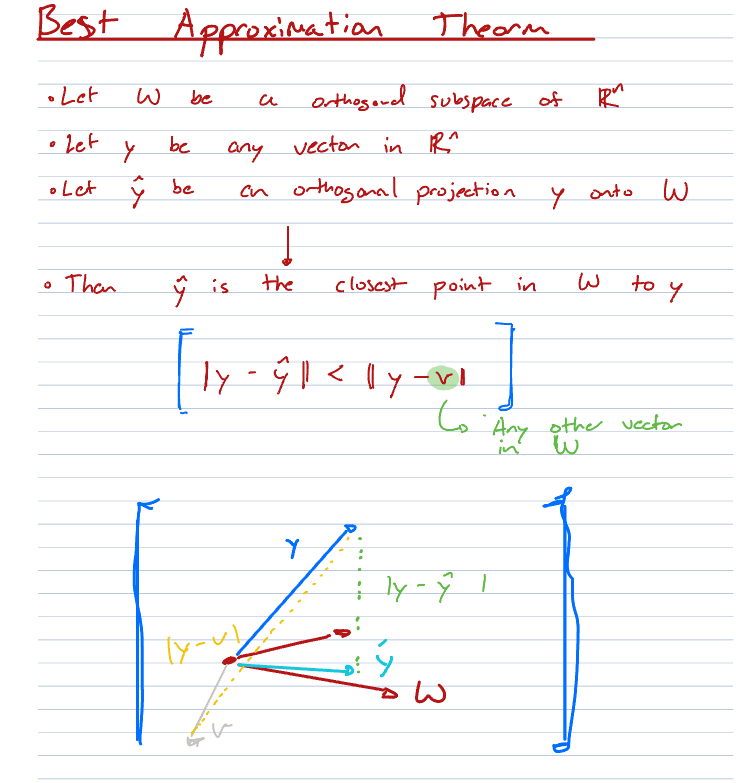 Best Approximation Theorm
• Let W be a orthogonal subspace of ℝⁿ
• Let y be any vector in ℝⁿ
• Let ŷ be an orthogonal projection y onto W
• Then ŷ is the closest point in W to y
|y - ŷ || < || y - v||
Any other vector
in W
y
|y - ŷ |
|y - v|
ŷ
W
v